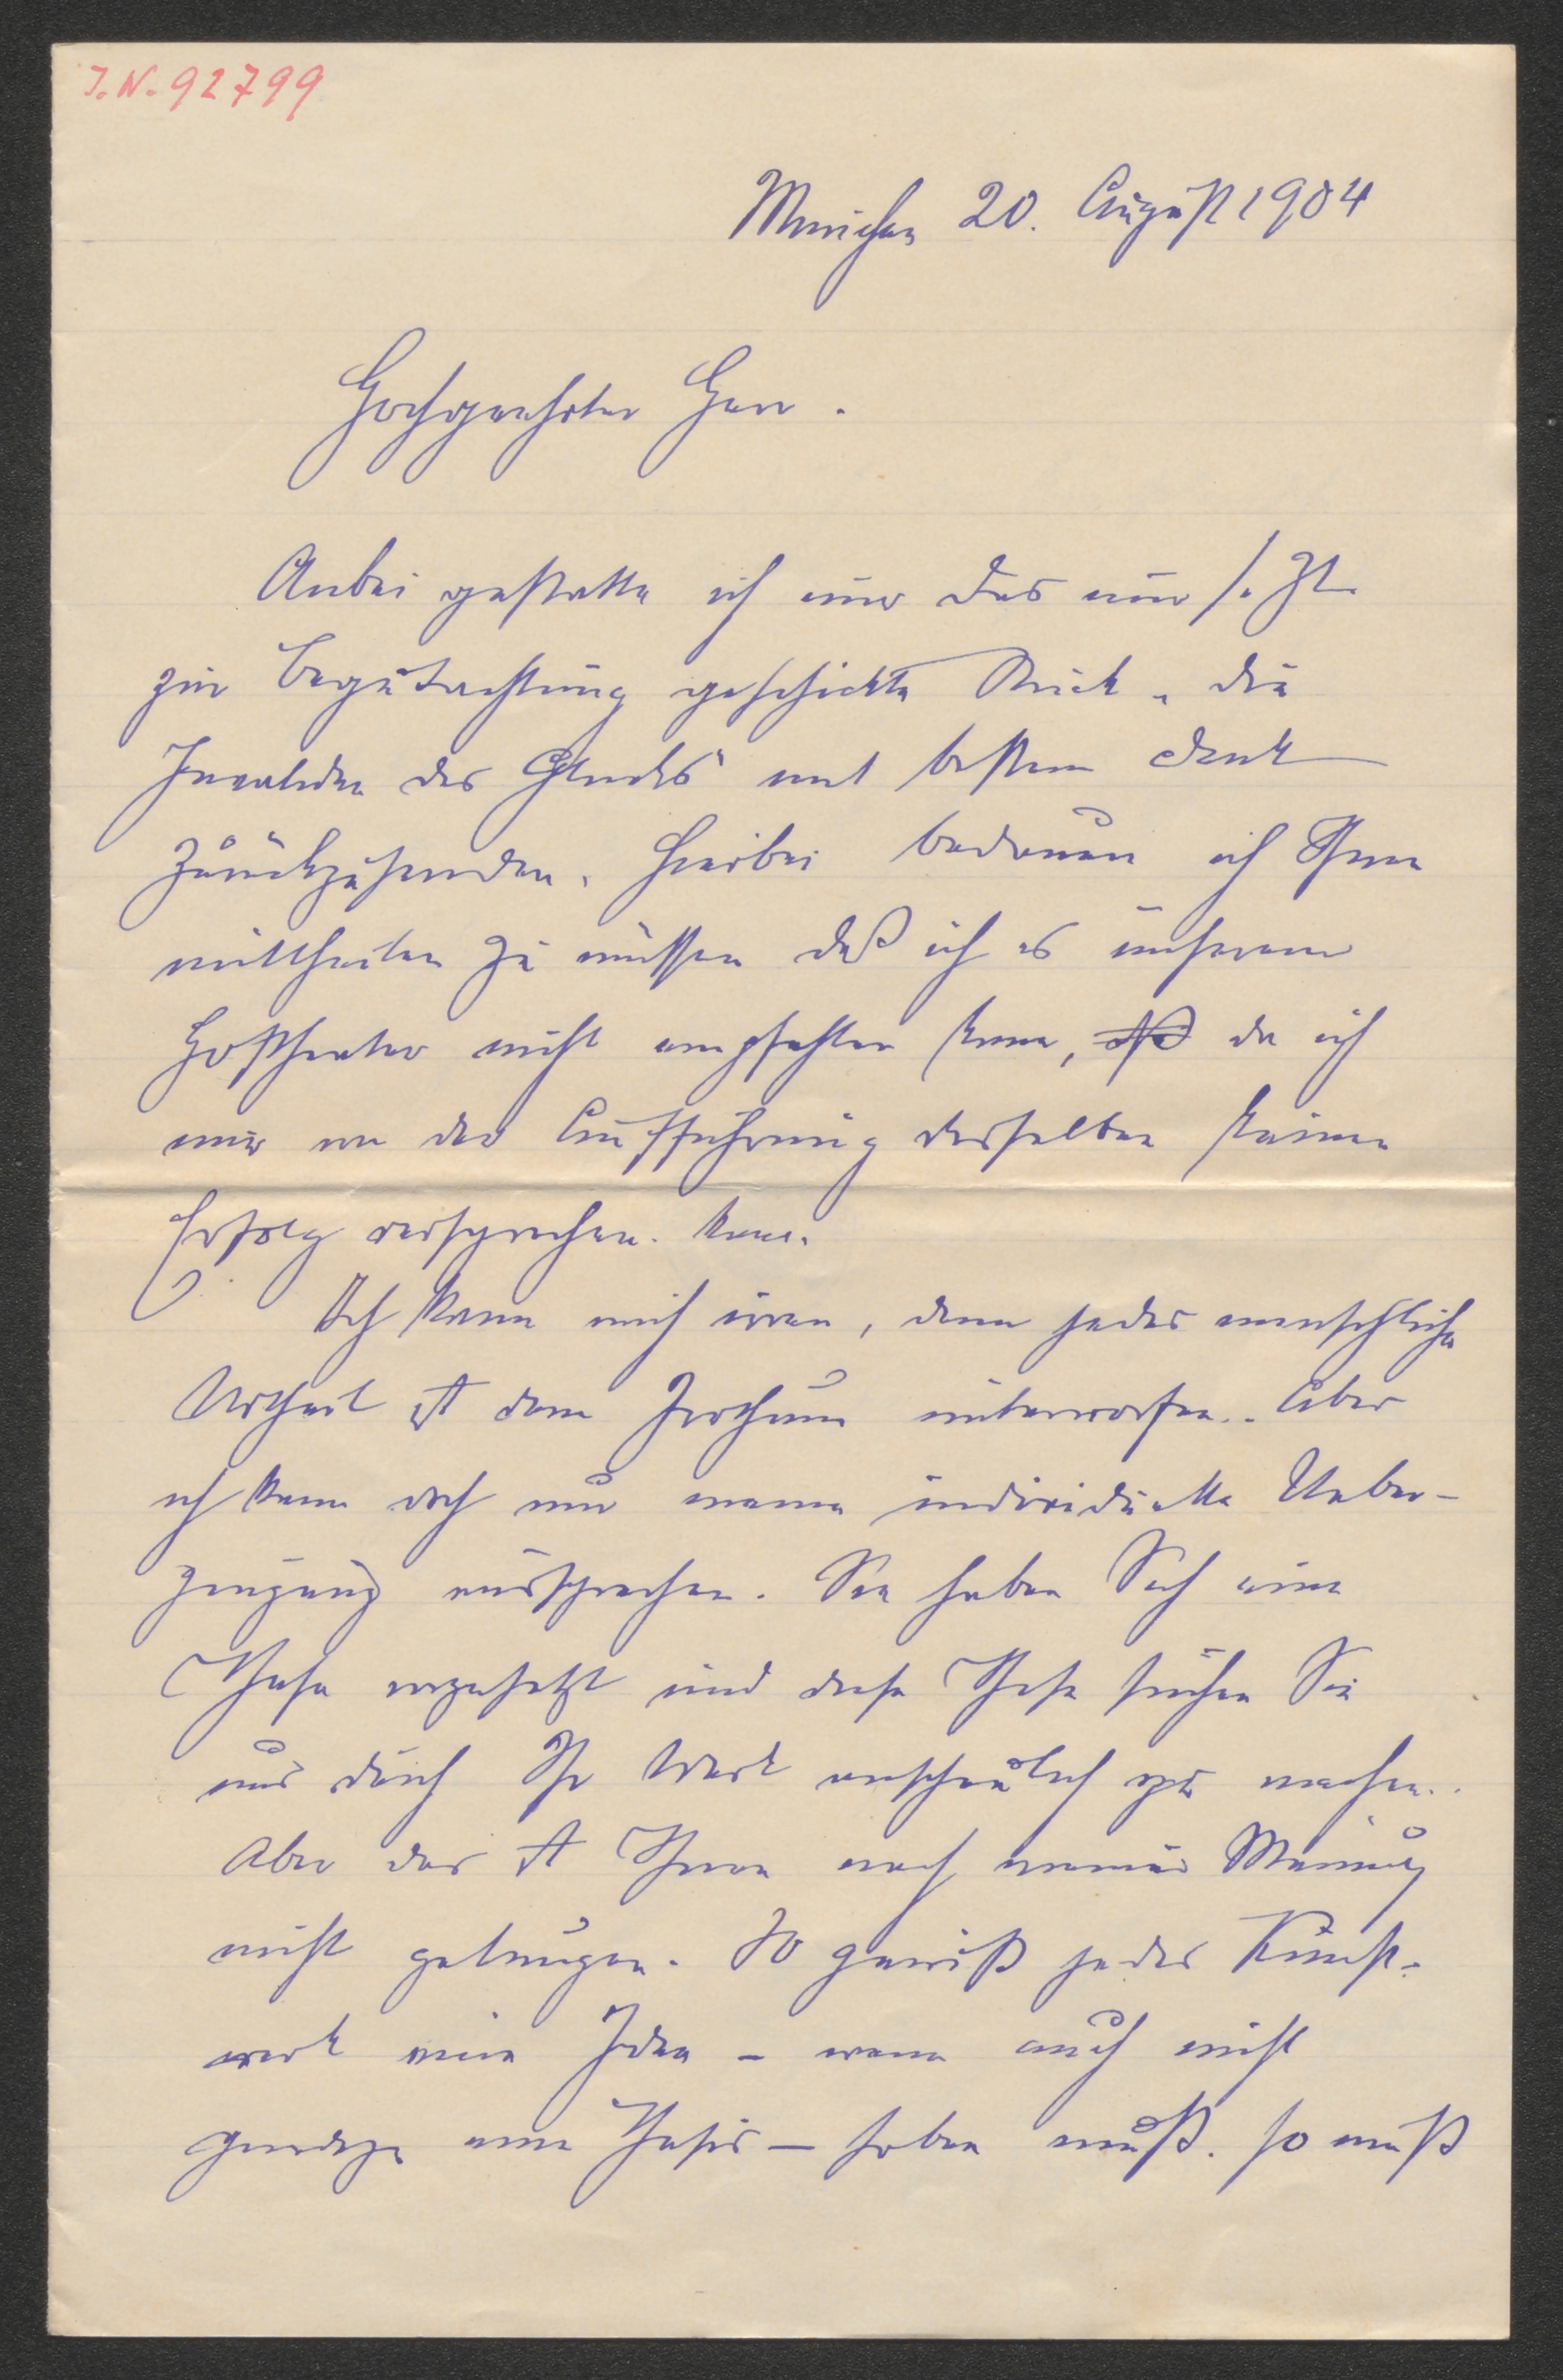 J.N. 92799
München 20. August 1904
Hochgeehrter Herr.
Anbei gestatte ich mir das mir s. Zt.
zur Begutachtung geschickte Stück „die
Invaliden des Glücks" mit bestem Dank
zurückzusenden. Hierbei bedaure ich Ihnen
mittheilen zu müssen daß ich es unserem
Hoftheater nicht empfehlen kann, da ich
mir von der Aufführung desselben keinen
Erfolg versprechen kann.
Ich kann mich irren, denn jedes menschliche
Urtheil ist dem Irrthum unterworfen. Aber
ich kann doch nur meine individuelle Ueber-
zeugung aussprechen. Sie haben Sich eine
These vorgesetzt und diese These suchen Sie
uns durch Ihr Werk anschaulich zu machen.
Aber das ist Ihnen nach meiner Meinung
nicht gelungen. So gewiß jedes Kunst-
werk eine Idee – wenn auch nicht
geradezu eine Thesis – haben muß. so muß